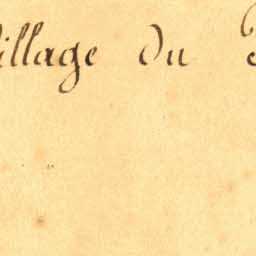 illage Du